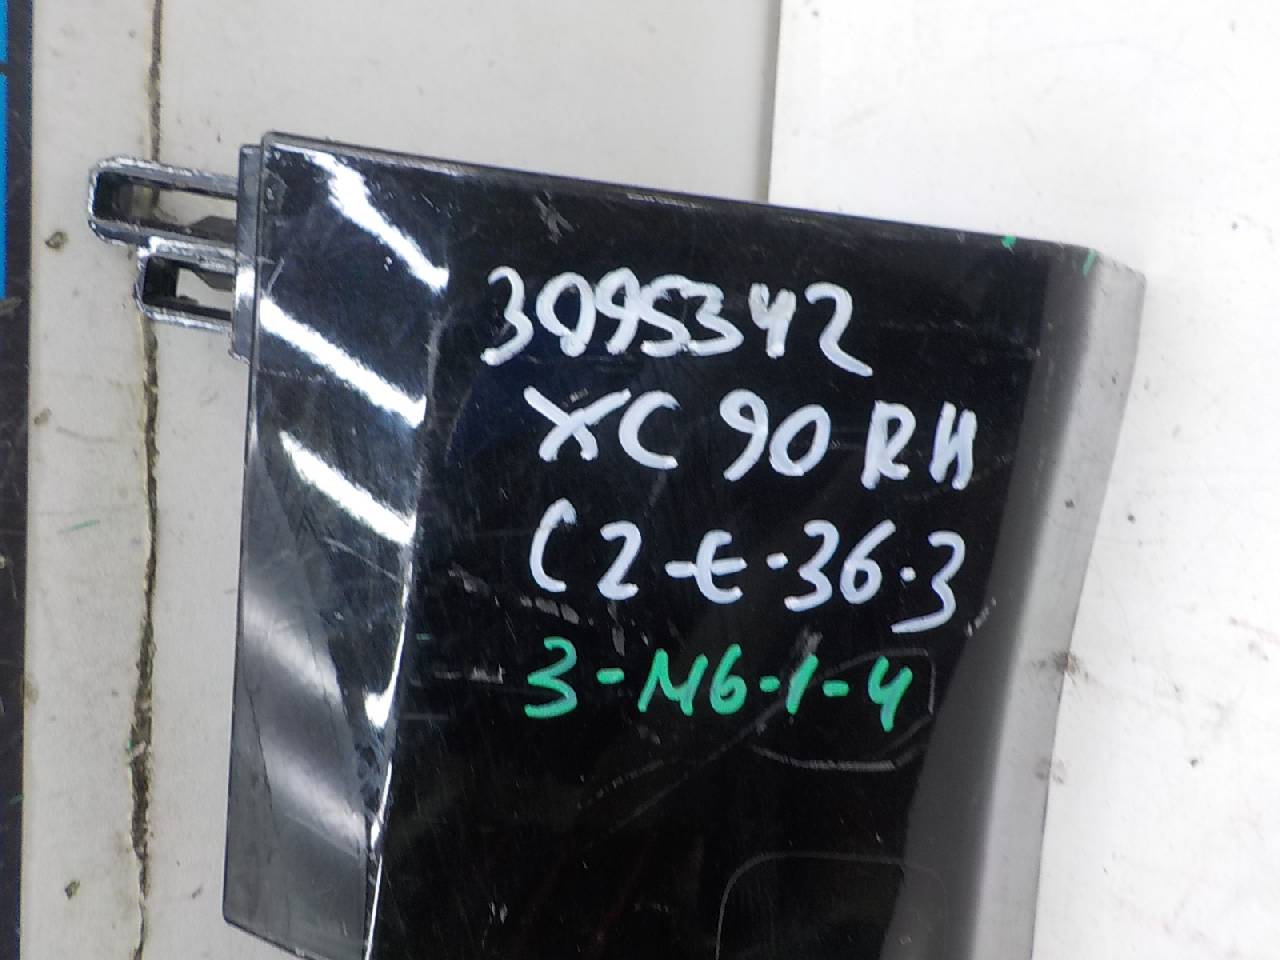 3095342
XC90 RH
C2-E-36-3
3-M6-1-4